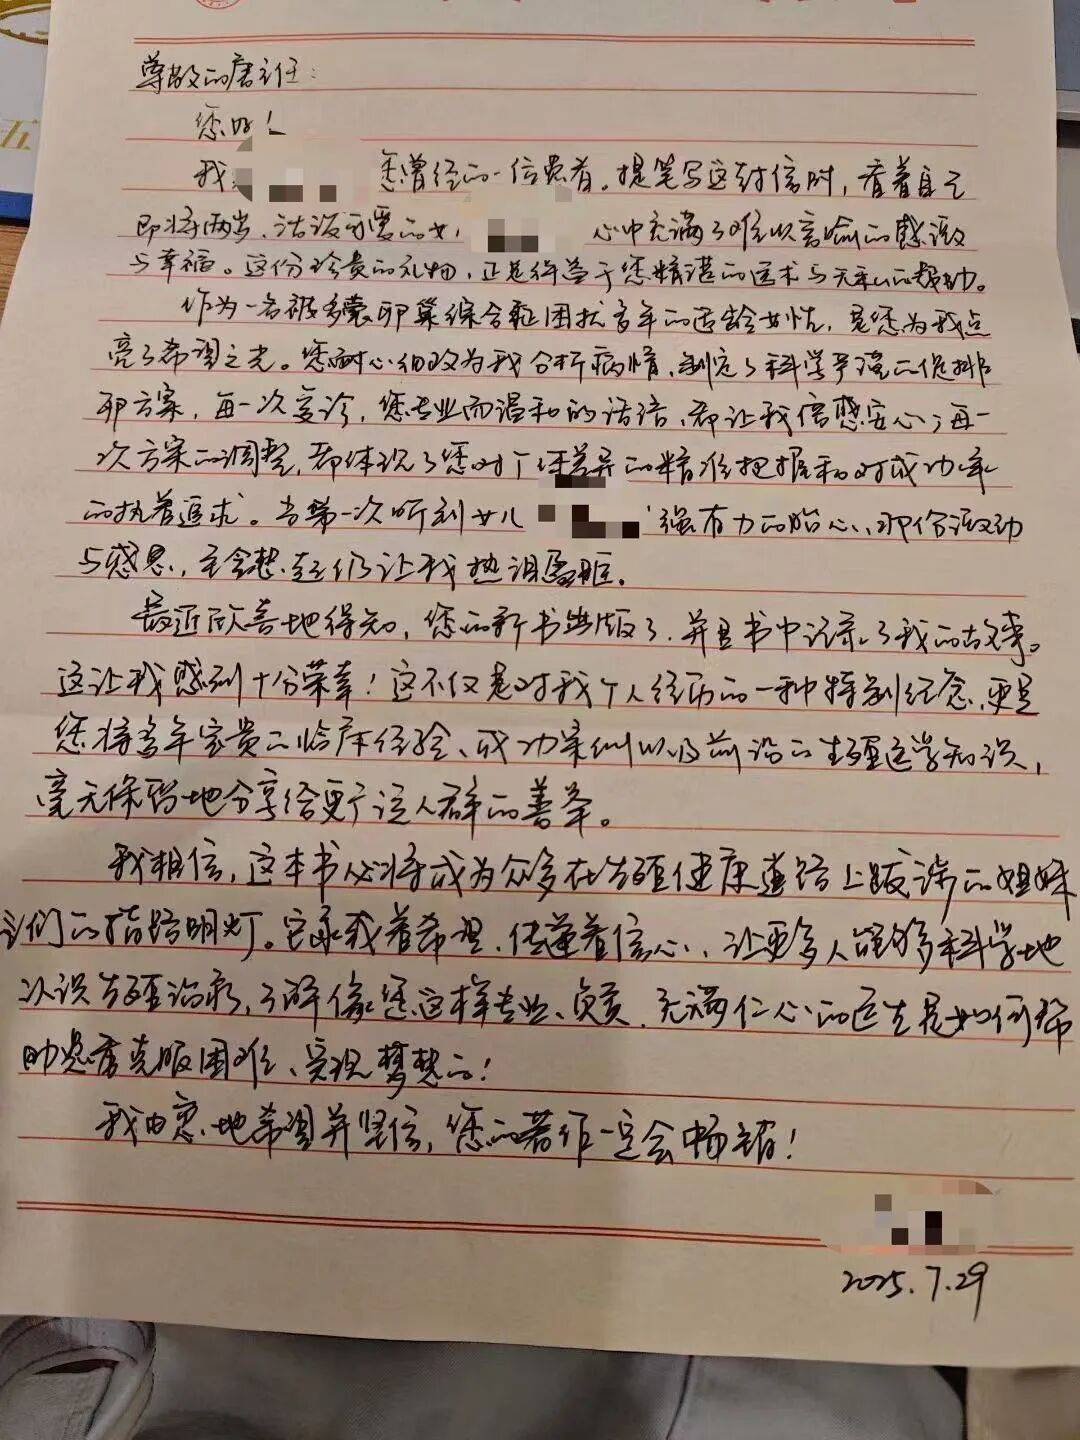 尊敬的唐主任:
您好!
我 您曾经的一位患者。提笔写这封信时,看着自己
即将两岁、活泼可爱的女 心中充满了难以言喻的感激
与幸福。这份珍贵的礼物,正是得益于您精湛的医术与无私的帮助。
作为一名被多囊卵巢综合症困扰多年的适龄女性,是您为我点
亮了希望之光。您耐心细致为我分析病情、制定了科学严谨的促排
卵方案,每一次复诊,您专业而温和的话语、都让我倍感安心;每一
次方案的调整,都体现了您对个体差异的精准把握和对成功率
的执着追求。当第一次听到女儿 强有力的胎心、那份激动
与感恩,至今想起仍让我热泪盈眶。
最近欣喜地得知,您的新书出版了、并且书中记录了我的故事。
这让我感到十分荣幸!这不仅是对我个人经历的一种特别纪念、更是
您将多年宝贵的临床经验、成功案例以及前沿的生殖医学知识,
毫无保留地分享给更广泛人群的善举。
我相信,这本书必将成为众多在生殖健康道路上跋涉的姐妹
们的指路明灯。它承载着希望、传递着信心、让更多人能够科学地
认识生殖治疗,了解像您这样专业、负责、充满仁心的医生是如何帮
助患者克服困难、实现梦想的!
我由衷地希望并坚信,您的著作一定会畅销!
2025.7.29
五